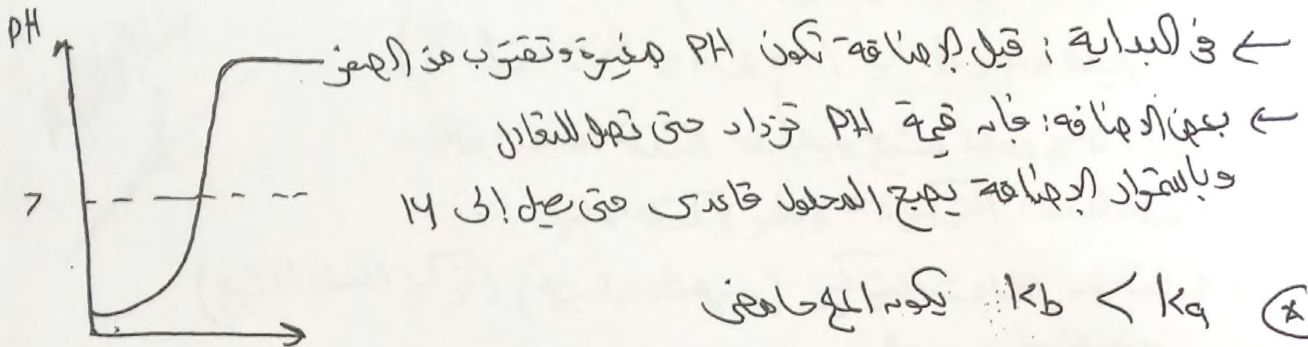 PH
← في البداية : قبل الإضافة تكون PH صغيرة وتقترب من الصفر
← بعض الإضافة : فإن قيمة PH تزداد حتى تصل للتعادل
7
وباستمرار الإضافة يصبح المحلول قاعدى حتى يصل إلى 14
* Kb < Ka يكون الملح حامضى